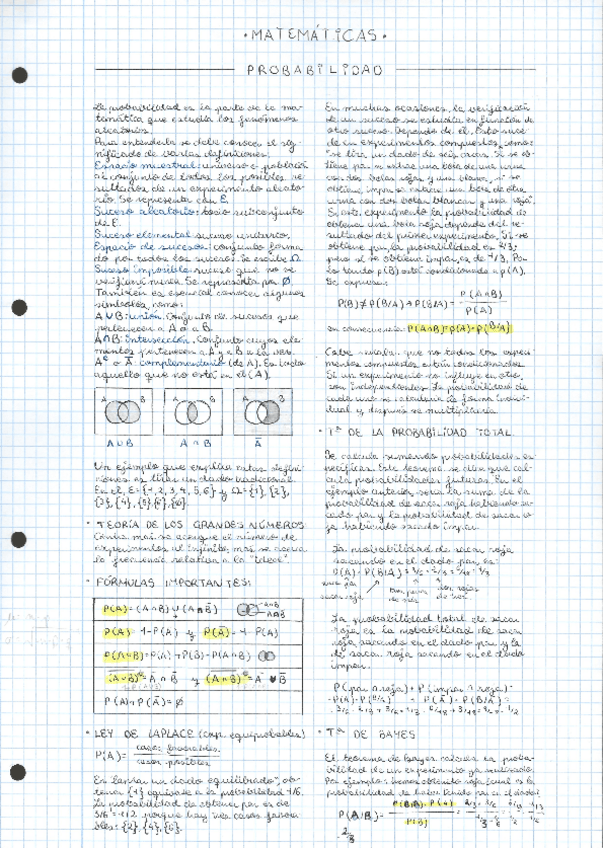 ·MATEMÁTICAS·
PROBABILIDAD
La probabilidad es la parte de la ma-
temática que estudia los fenómenos
aleatorios.
Para entenderla se debe conocer el sig-
nificado de varias definiciones:
Espacio muestral: universo o población
al conjunto de todos los posibles re-
sultados de un experimento aleato-
rio. Se representa con E.
Suceso aleatorio: todo subconjunto
de E.
Suceso elemental: suceso unitario.
Espacio de sucesos: conjunto forma
do por todos los sucesos. Se escribe Ω.
Suceso imposible: suceso que no se
verifica nunca. Se representa por Ø.
También es esencial conocer algunos
símbolos como:
A∪B: unión. Conjunto de sucesos que
pertenecen a A o a B.
A∩B: intersección. Conjunto cuyos ele
mentos pertenecen a A y a B a la vez.
Aᶜ o Ā: complementario (de A). Es todo
aquello que no está en el (A).
A B A B A B
A∪B A∩B Ā
Un ejemplo que explica estas defini-
ciones es tirar un dado tradicional.
En él, E={1, 2, 3, 4, 5, 6} y Ω={1}, {2},
{3}, {4}, {5}, {6}.
· TEORÍA DE LOS GRANDES NÚMEROS
Cuánto más se acerque el número de
experimentos al infinito, más se acerca
la frecuencia relativa a la "ideal".
· FÓRMULAS IMPORTANTES:
P(A)=(A∩B)∪(A∩B̄)
P(A)= 1-P(Ā) y P(Ā)= 1-P(A)
P(A∪B)=P(A)+P(B)-P(A∩B)
· LEY DE LAPLACE (exp. equiprobables)
P(A)= casos favorables
casos posibles
En lanzar un dado equilibrado, ob-
tener {1} equivale a la probabilidad 1/6.
La probabilidad de obtener par es de
3/6=1/2 porque hay tres casos favora
bles: {2}, {4}, {6}.
En muchas ocasiones, la verificación
de un suceso se estudia en función de
otro suceso. Depende de él. Esto suce
de en experimentos compuestos como:
se tira un dado de seis caras. Si se ob-
tiene par se extrae una bola de una urna
con dos bolas rojas y una blanca, y si se
obtiene impar se extrae una bola de otra
urna con dos bolas blancas y una roja".
En este experimento la probabilidad de
obtener una bola roja depende del re-
sultado del primer experimento. Si se
obtiene par, la probabilidad es 2/3;
pero si se obtiene impar, es de 1/3. Por
lo tanto p(B) está condicionado a p(A).
Se expresa:
P(B)≠P(B/A)→P(B/A)= P(A∩B)
P(A)
en consecuencia: P(A∩B)=P(A)·P(B/A)
Cabe señalar que no todos los experi-
mentos compuestos están condicionados.
Si un experimento no influye en otro,
son independientes. La probabilidad de
cada uno se calculará de forma indivi-
dual y después se multiplicaría.
· Tª DE LA PROBABILIDAD TOTAL
Se calcula sumando probabilidades es-
pecíficas. Este teorema se dice que cal-
cula probabilidades futuras. En el
ejemplo anterior, sería la suma de la
probabilidad de sacar roja habiendo sa-
cado par y la probabilidad de sacar ro
ja habiendo sacado impar.
La probabilidad de sacar roja
sacando en el dado par es:
La probabilidad total de sacar
roja es la probabilidad de sacar
roja sacando en el dado par y la
de sacar roja sacando en el dado
impar.
P(par∩roja)+P(impar∩roja)=
· Tª DE BAYES
El teorema de Bayes calcula la proba-
bilidad de un experimento ya realizado.